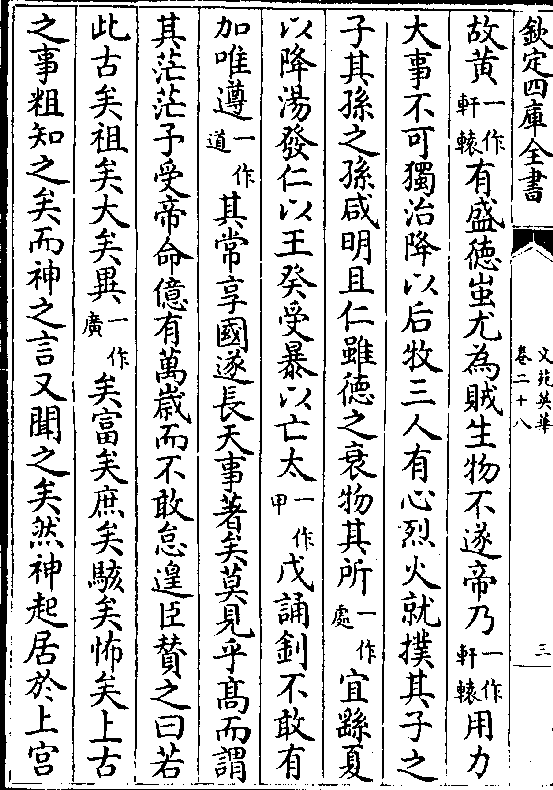 欽定四庫全書
文苑英華
卷二十八
三
故黃一作軒轅有盛德蚩尤為賊生物不遂帝乃一作軒轅用力
大事不可獨治降以后牧三人有心烈火就撲其子之
子其孫之孫咸明且仁雖德之衰物其所一作處宜繇夏
以降湯發仁以王癸受暴以亡太一作甲戊誦釗不敢有
加唯遵一作道其常享國遂長天事著矣莫見乎髙而謂
其茫茫予受帝命億有萬歲而不敢怠遑臣贊之曰若
此古矣祖矣大矣異一作廣矣富矣庶矣駭矣怖矣上古
之事粗知之矣而神之言又聞之矣然神起居於上宫